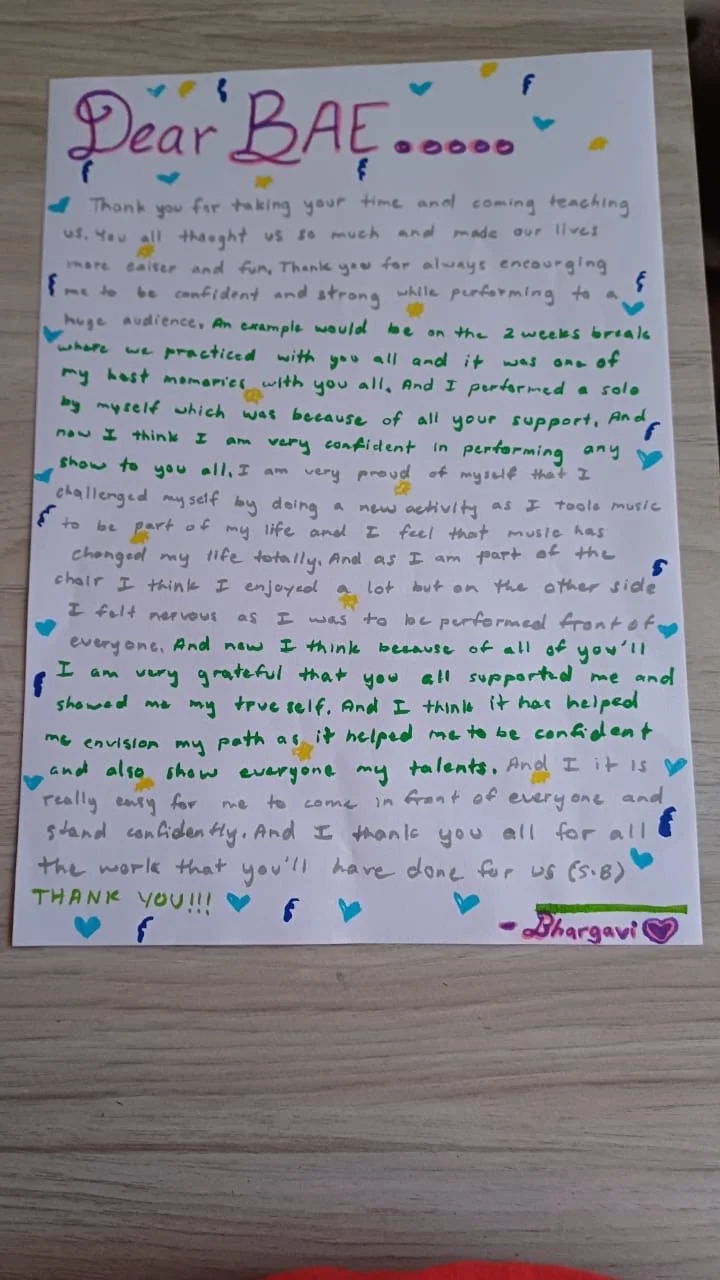 Dear BAE.....
Thank you for taking your time and coming teaching
us. You all thaught us so much and made our lives
more eaiser and fun. Thank you for always encourging
me to be confident and strong while performing to a
huge audience. An example would be on the 2 weeks break
where we practiced with you all and it was one of
my best memories with you all. And I performed a solo
by myself which was because of all your support. And
now I think I am very confident in performing any
show to you all. I am very proud of myself that I
challenged myself by doing a new activity as I took music
to be part of my life and I feel that music has
changed my life totally. And as I am part of the
choir I think I enjoyed a lot but on the other side
I felt nervous as I was to be performed front of
everyone. And now I think because of all of you'll
I am very grateful that you all supported me and
showed me my true self. And I think it has helped
me envision my path as it helped me to be confident
and also show everyone my talents. And I it is
really easy for me to come in front of everyone and
stand confidently. And I thank you all for all
the work that you'll have done for us (S.B)
THANK YOU!!!
- Bhargavi